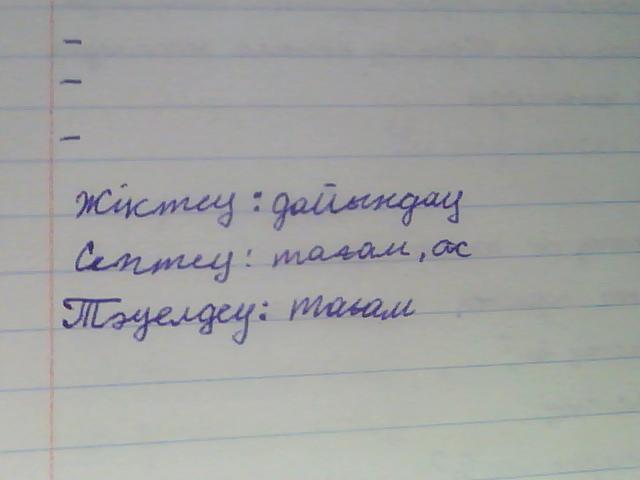 -
-
-
Жіктеу: дайындау
Септеу: тағам, ас
Тәуелдеу: тағам